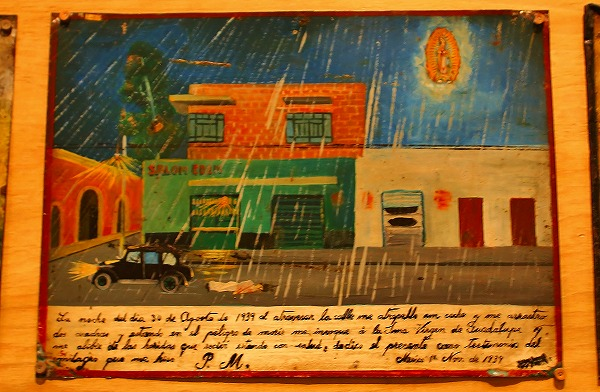 La noche del día 30 de Agosto de 1939 al atravesar la calle me atropelló un coche y me arrastró
dos cuadras y estando en el peligro de morir me invoque á la Sma Virgen de Guadalupe y
me alibié de las heridas que recibí estando con salud, dedico el presente como testimonio del
milagro que me hiso P. M. Mexico 1º Nov. de 1939